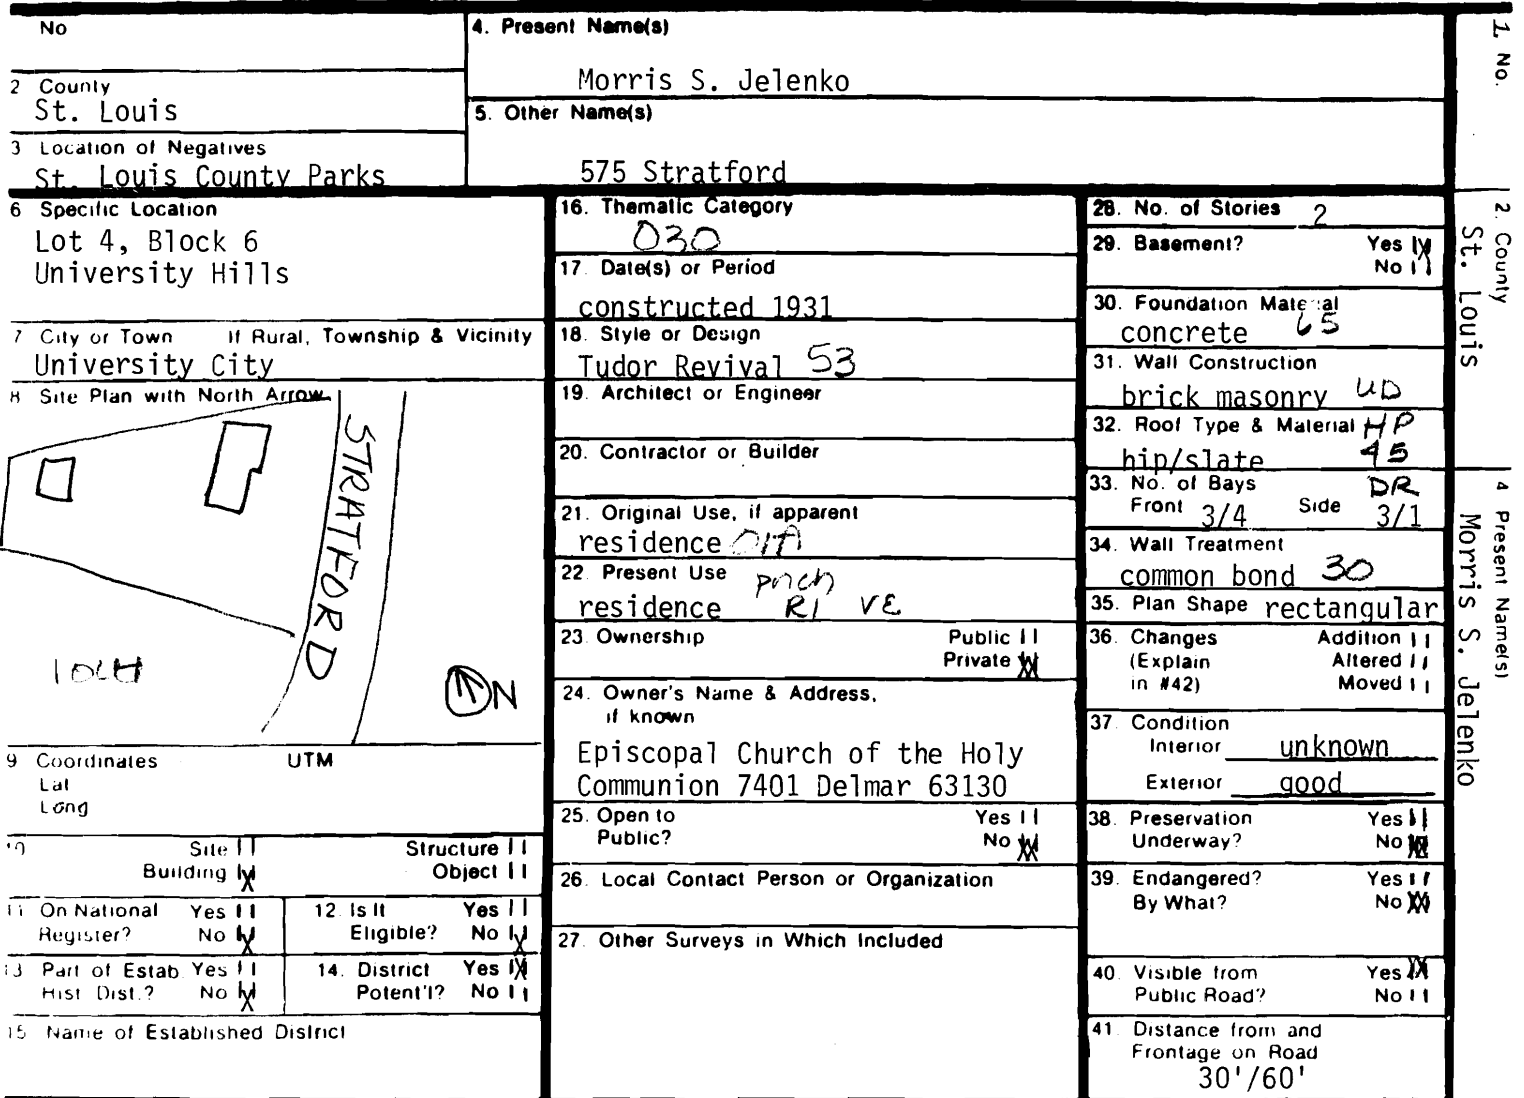 No
2 County
St. Louis
3 Location of Negatives
St. Louis County Parks
4. Present Name(s)
Morris S. Jelenko
5. Other Name(s)
575 Stratford
6 Specific Location
Lot 4, Block 6
University Hills
7 City or Town If Rural, Township & Vicinity
University City
8 Site Plan with North Arrow
STRATFORD
N
9 Coordinates UTM
Lat
Long
10 Site Structure
Building X Object
11 On National Yes
Register? No X
12. Is It Yes
Eligible? No X
13 Part of Estab. Yes
Hist. Dist.? No X
14. District Yes X
Potent'l? No
15 Name of Established District
16. Thematic Category
030
17. Date(s) or Period
constructed 1931
18. Style or Design
Tudor Revival 53
19. Architect or Engineer
20. Contractor or Builder
21. Original Use, if apparent
residence 01A
22. Present Use
residence porch R1 VE
23. Ownership Public
Private X
24. Owner's Name & Address,
if known
Episcopal Church of the Holy
Communion 7401 Delmar 63130
25. Open to Yes
Public? No X
26. Local Contact Person or Organization
27. Other Surveys in Which Included
28. No. of Stories 2
29. Basement? Yes X
No
30. Foundation Material
concrete 65
31. Wall Construction
brick masonry UD
32. Roof Type & Material HP
hip/slate 45
33. No. of Bays DR
Front 3/4 Side 3/1
34. Wall Treatment
common bond 30
35. Plan Shape rectangular
36. Changes Addition
(Explain Altered
in #42) Moved
37. Condition
Interior unknown
Exterior good
38. Preservation Yes
Underway? No X
39. Endangered? Yes
By What? No X
40. Visible from Yes X
Public Road? No
41. Distance from and
Frontage on Road
30'/60'
1. No.
2. County
St. Louis
4 Present Name(s)
Morris S. Jelenko